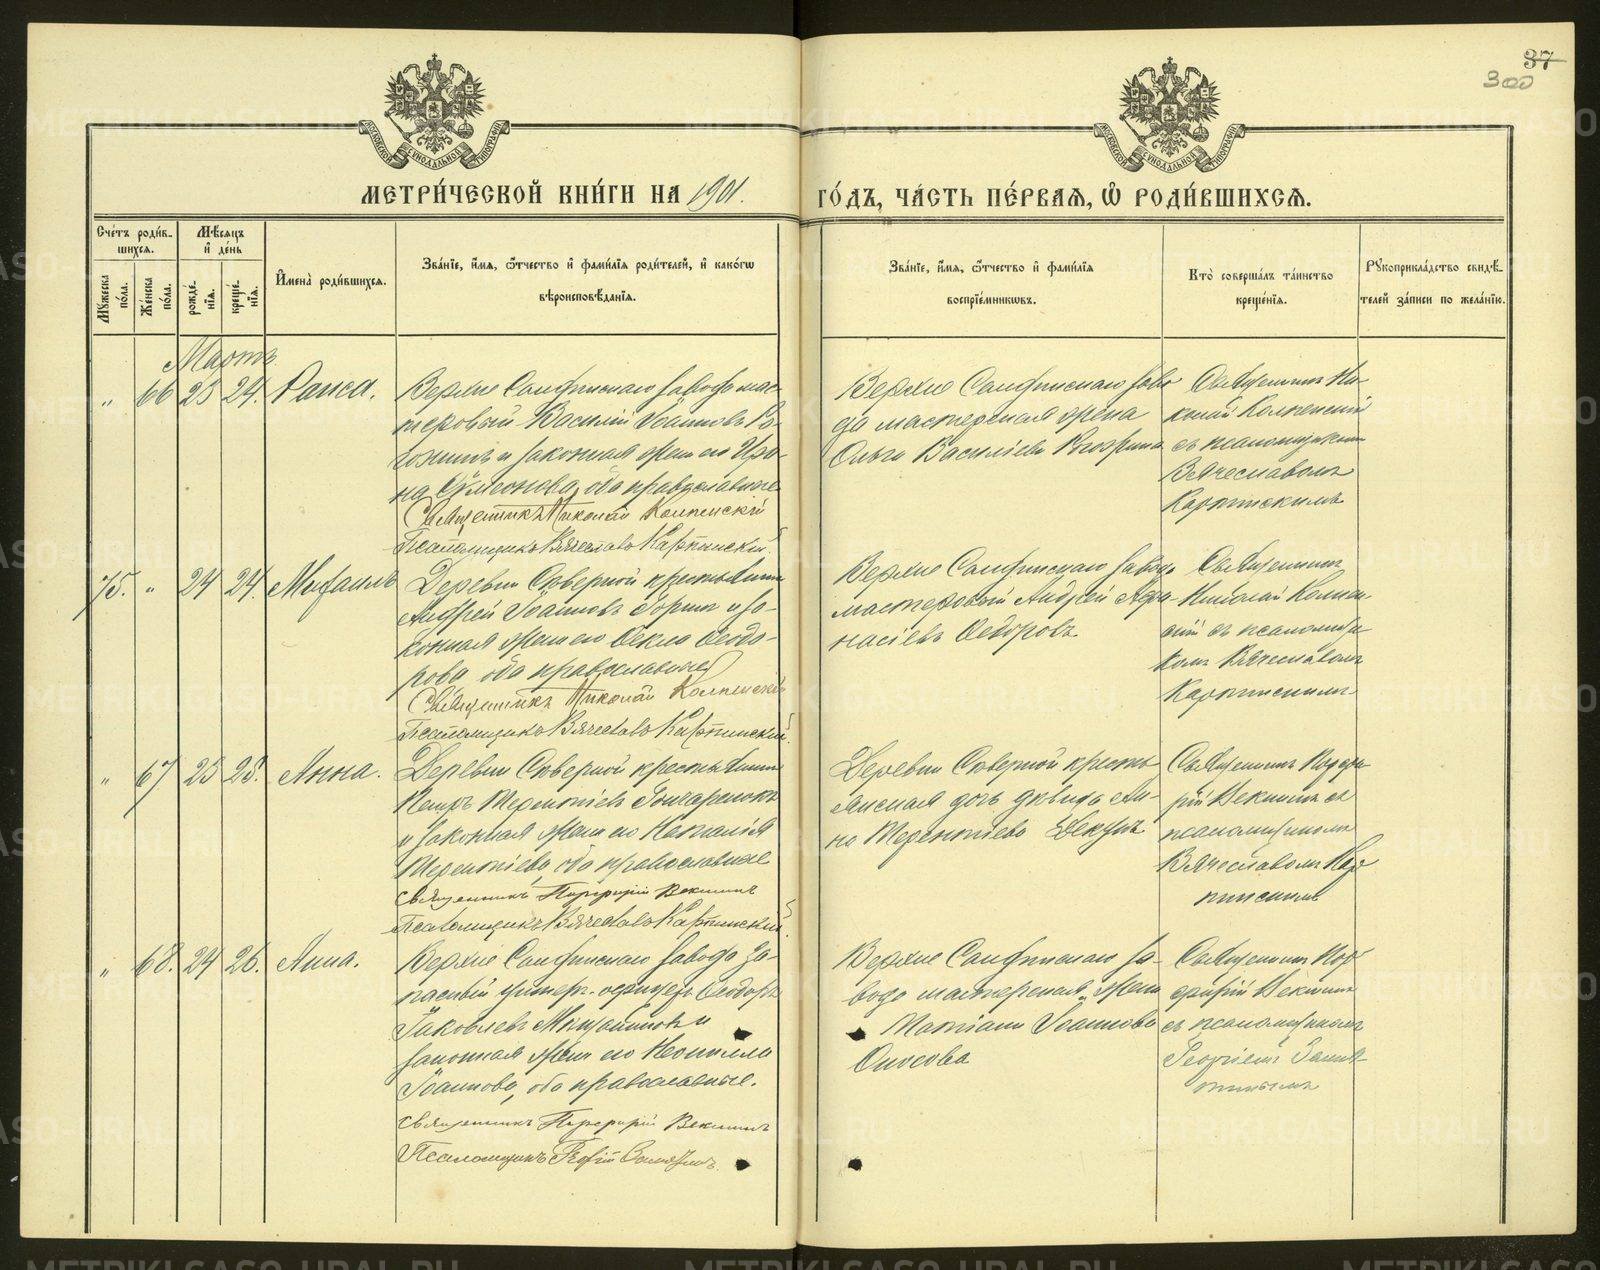 37
300
МОСКОВСКОЙ СУНОДАЛЬНОЙ ТИПОГРАФІИ
МОСКОВСКОЙ СУНОДАЛЬНОЙ ТИПОГРАФІИ
МЕТРИ́ЧЕСКОЙ КНИ́ГИ НА 1901. ГО́ДЪ, ЧА́СТЬ ПЕ́РВАѦ, Ѽ РОДИ́ВШИХСѦ.
Счетъ роди́в-
шихсѧ.
Мꙋжеска по́ла.
Же́нска по́ла.
Мѣсѧцъ
и҆ де́нь
рожде́-
нїѧ.
креще́-
нїѧ.
И҆мена̀ роди́вшихсѧ.
Зва́нїе, и҆́мѧ, ѻ҆́тчество и҆ фами́лїѧ роди́телей, и҆ како́гѡ
вѣроисповѣ́данїѧ.
Зва́нїе, и҆́мѧ, ѻ҆́тчество и҆ фами́лїѧ
воспрїе́мникѡвъ.
Кто̀ соверша́лъ та́инство
креще́нїѧ.
Рꙋкоприкла́дство свидѣ́-
телей за́писи по жела́нїю.
Мартъ
" 66 23 24. Раиса.
Верхне Салдинскаго завода мас-
теровый Василій Іоанновъ Ро-
гожинъ и законная жена его Ири-
на Сѵмеонова, оба православные
Священникъ Николай Колпенскій
Псаломщикъ Вячеславъ Карпинскій.
Верхне Салдинскаго заво
да мастерская жена
Ольга Василіева
Священникъ Ни-
колай Колпенскій
съ псаломщикомъ
Вячеславомъ
Карпинскимъ
75. " 24 24. Михаилъ
Деревни Северной крестьянинъ
Андрей Іоанновъ Горинъ и за-
конная жена его Ѳекла Ѳеодо-
рова оба православные
Священникъ Николай Колпенскій
Псаломщикъ Вячеславъ Карпинскій.
Верхне Салдинскаго завода
мастеровый Андрей Аѳа-
насіевъ Ѳедоровъ
Священникъ
Николай Колпен-
скій съ псаломщи-
комъ Вячеславомъ
Карпинскимъ
" 67 23 25. Анна.
Деревни Северной крестьянинъ
Петръ Терентіевъ Гончаренокъ
и законная жена его Наталія
Терентіева, оба православные
Священникъ Порфирій Векшинъ
Псаломщикъ Вячеславъ Карпинскій.
Деревни Северной кресть-
янская дочь девица Ан-
на Терентіева
Священникъ Порфи-
рій Векшинъ съ
псаломщикомъ
Вячеславомъ Кар-
пинскимъ
" 68. 24 26. Анна.
Верхне Салдинскаго завода за-
пасный унтеръ-офицеръ Ѳеодоръ
Іаковлевъ и
законная жена его Неонилла
Іоаннова, оба православные.
Священникъ Порфирій Векшинъ
Псаломщикъ Георгій
Верхне Салдинскаго за-
вода мастерская жена
Іоаннова
Оносова
Священникъ Пор-
фирій Векшинъ
съ псаломщикомъ
Георгіемъ